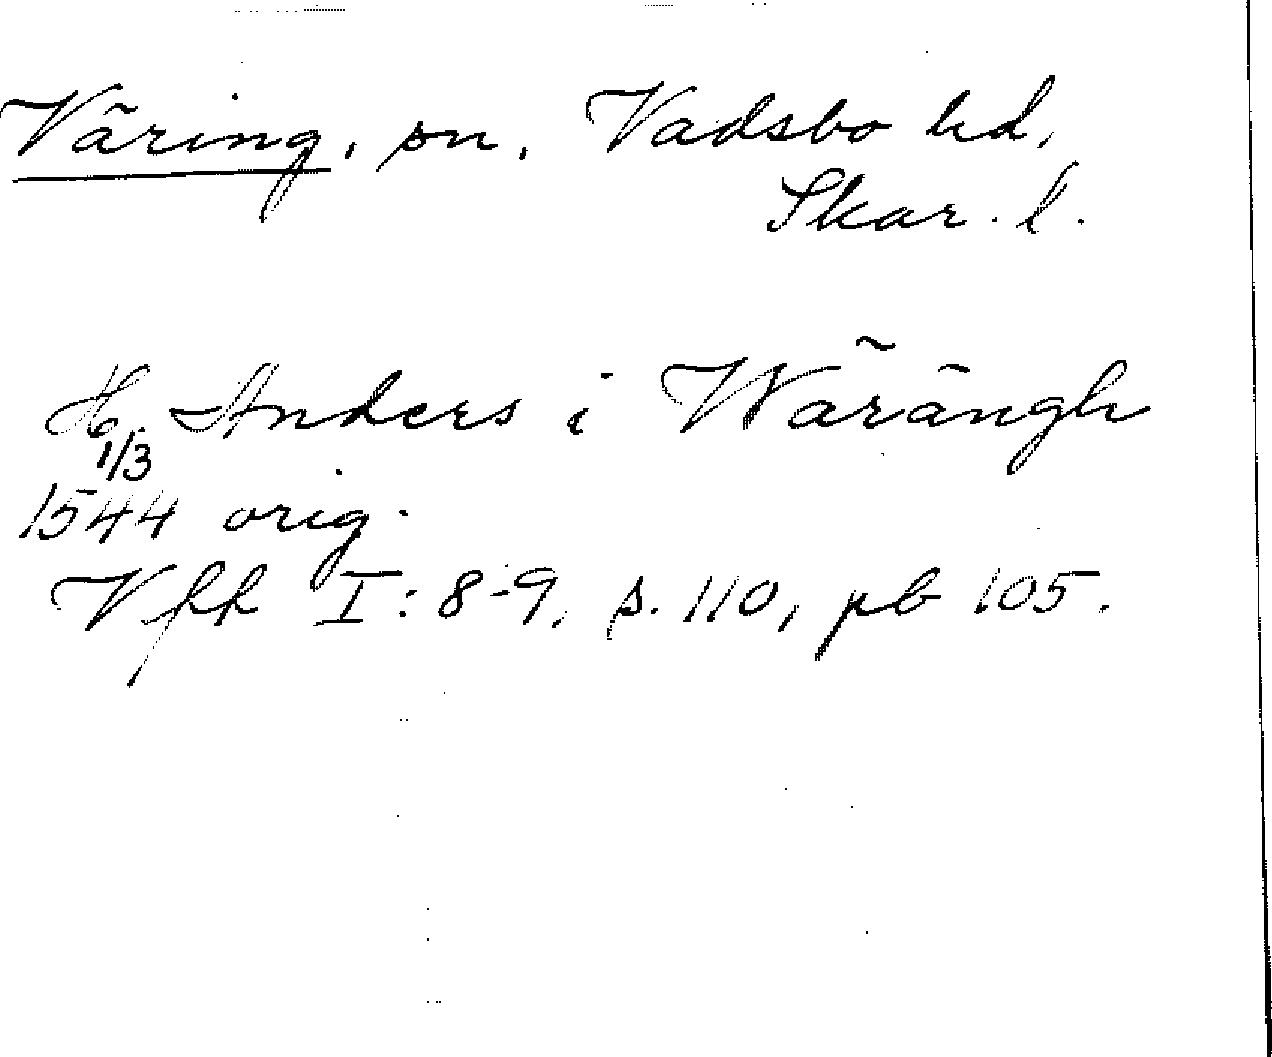 Väring, sn, Vadsbo hd,
Skar. l.
H. Anders i Wärängh
1/3
1544 orig.
Vffh I: 8-9, s. 110, pb 105.